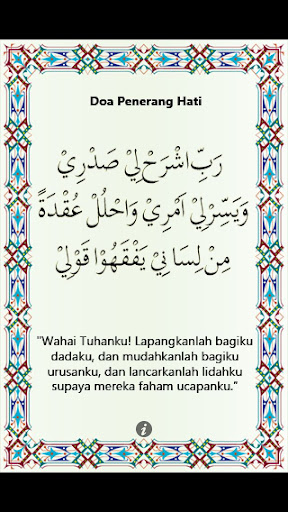 Doa Penerang Hati
رَبِّ اشْرَحْ لِيْ صَدْرِيْ
وَيَسِّرْ لِيْ اَمْرِيْ وَاحْلُلْ عُقْدَةً
مِنْ لِسَانِيْ يَفْقَهُوْا قَوْلِيْ
"Wahai Tuhanku! Lapangkanlah bagiku
dadaku, dan mudahkanlah bagiku
urusanku, dan lancarkanlah lidahku
supaya mereka faham ucapanku."
i